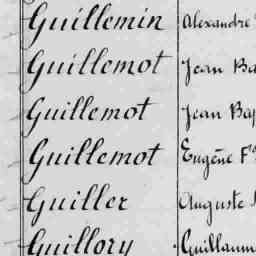 Guillemin Alexandre
Guillemot Jean Ba
Guillemot Jean Bap
Guillemot Eugène F
Guiller Auguste
Guillory Guillaum